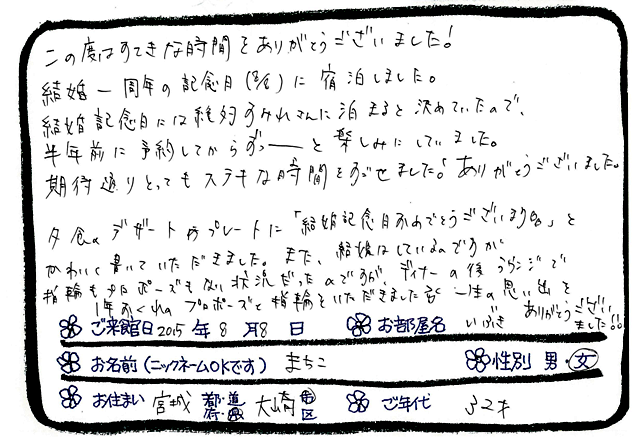 この度はすてきな時間をありがとうございました!
結婚一周年の記念日(8/8)に宿泊しました。
結婚記念日には絶対すみれさんに泊まると決めていたので、
半年前に予約してからずっーと楽しみにしていました。
期待通りとってもステキな時間をすごせました!ありがとうございました。
夕食のデザートのプレートに「結婚記念日おめでとうございます」と
かわいく書いていただきました。また、結婚はしているのですが
指輪もプロポーズもない状況だったのですが、ディナーの後ラウンジで
1年おくれのプロポーズと指輪をいただきました 一生の思い出を
ありがとうござい
ました!!
ご来館日 2015年 8月8日 お部屋名 いぶき
お名前(ニックネームOKです) まちこ 性別 男・女
お住まい 宮城 都道府県 大崎 市区 ご年代 32才